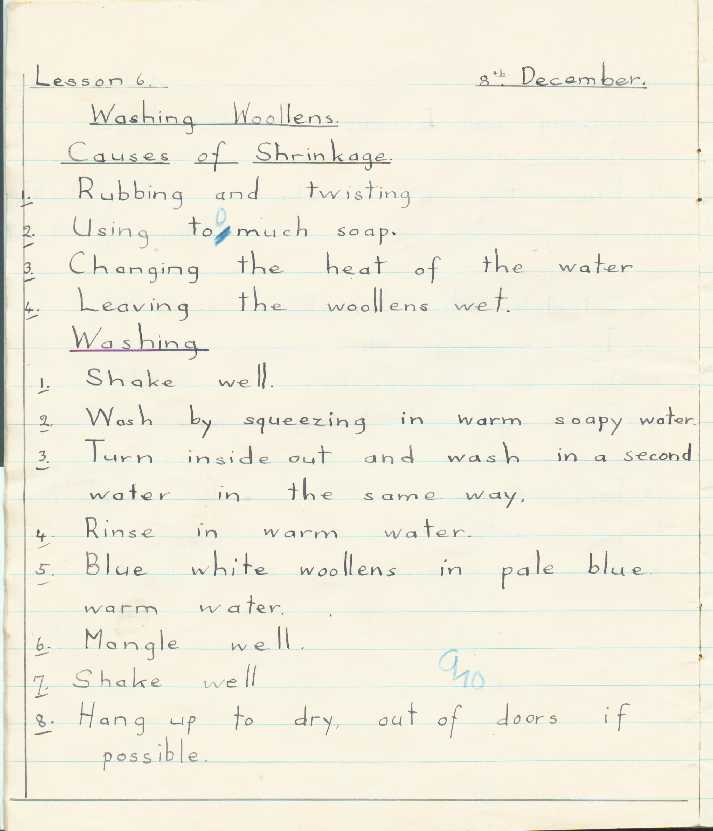 Lesson 6. 8th December.
Washing Woollens.
Causes of Shrinkage.
1. Rubbing and twisting
2. Using too much soap.
3. Changing the heat of the water
4. Leaving the woollens wet.
Washing
1. Shake well.
2. Wash by squeezing in warm soapy water.
3. Turn inside out and wash in a second
water in the same way.
4. Rinse in warm water.
5. Blue white woollens in pale blue
warm water.
6. Mangle well.
7. Shake well
9/10
8. Hang up to dry, out of doors if
possible.